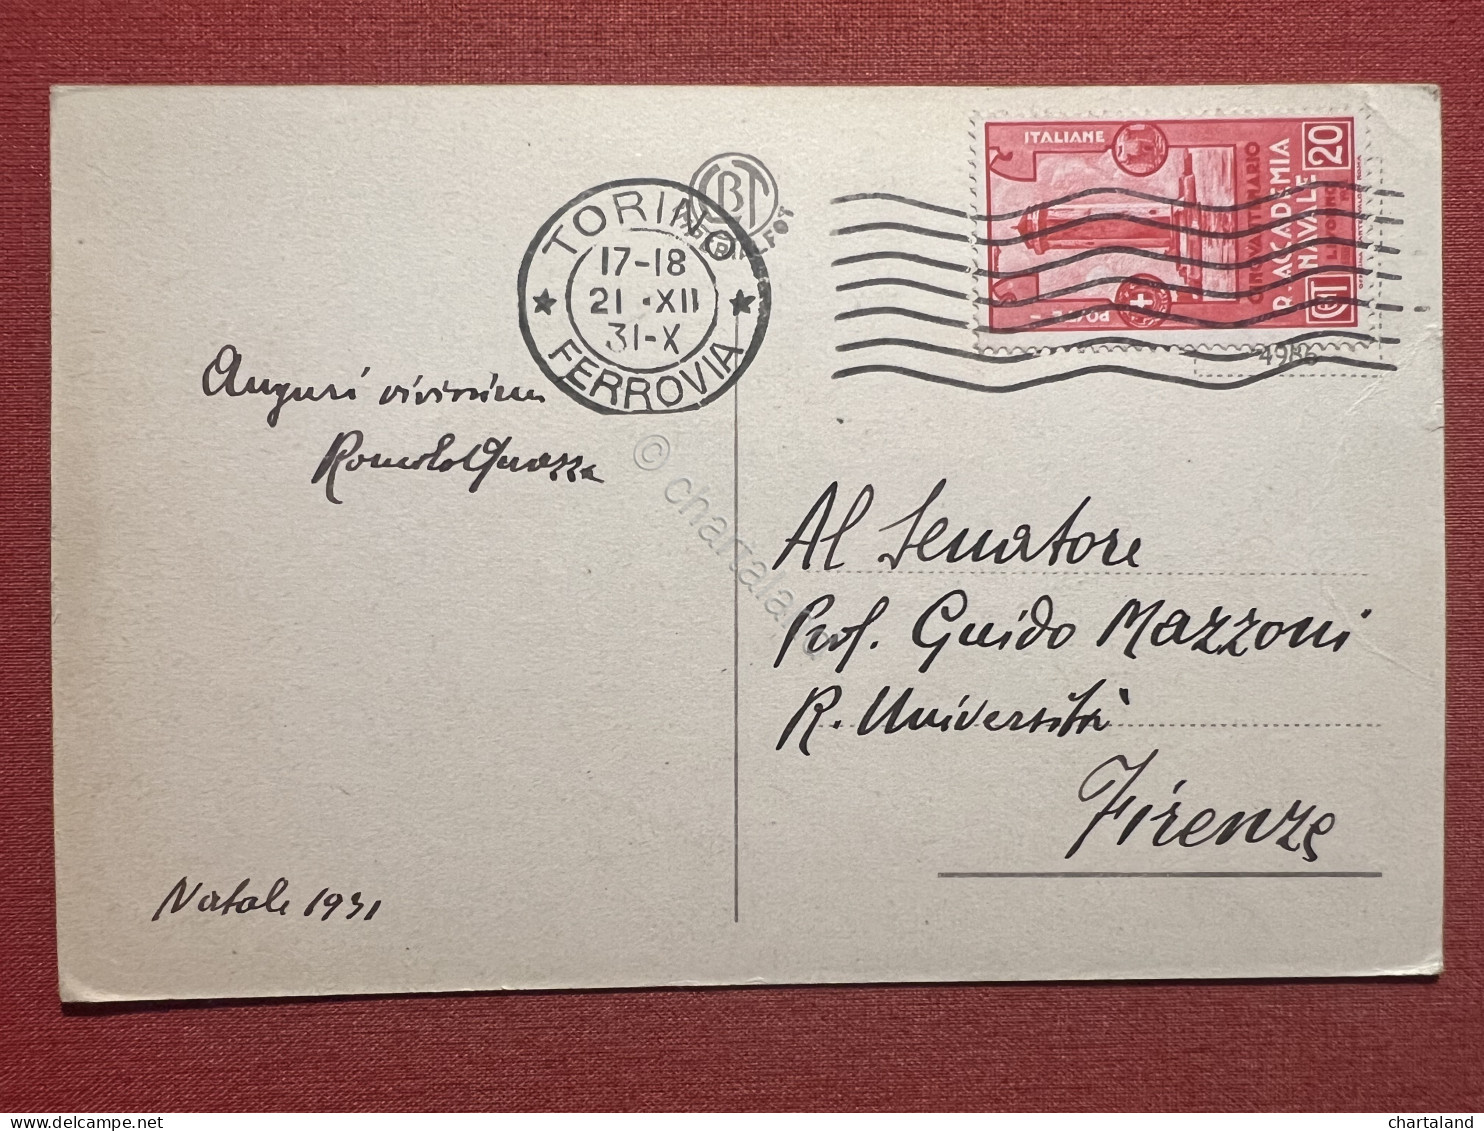 TORINO
17-18
21 · XII
31-X
FERROVIA
ITALIANE
POSTE
CINQVANTENARIO
R ACCADEMIA
NAVALE
LIVORNO
20
4986
Auguri vivissimi
Romolo Quazza
Natale 1931
Al Senatore
Prof. Guido Mazzoni
R. Università
Firenze
© chartaland
chartaland